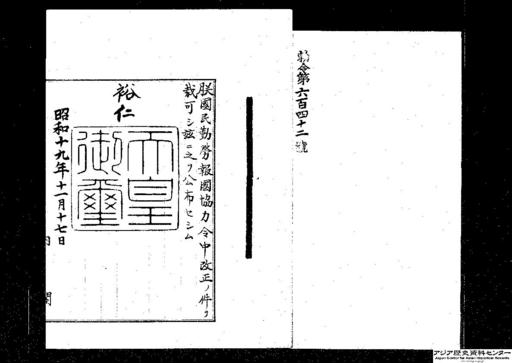 勅令第六百四十二號
朕國民勤勞報國協力令中改正ノ件ヲ
裁可シ玆ニ之ヲ公布セシム
裕仁
天皇
御璽
昭和十九年十一月十七日
内閣
アジア歴史資料センター
Japan Center for Asian Historical Records